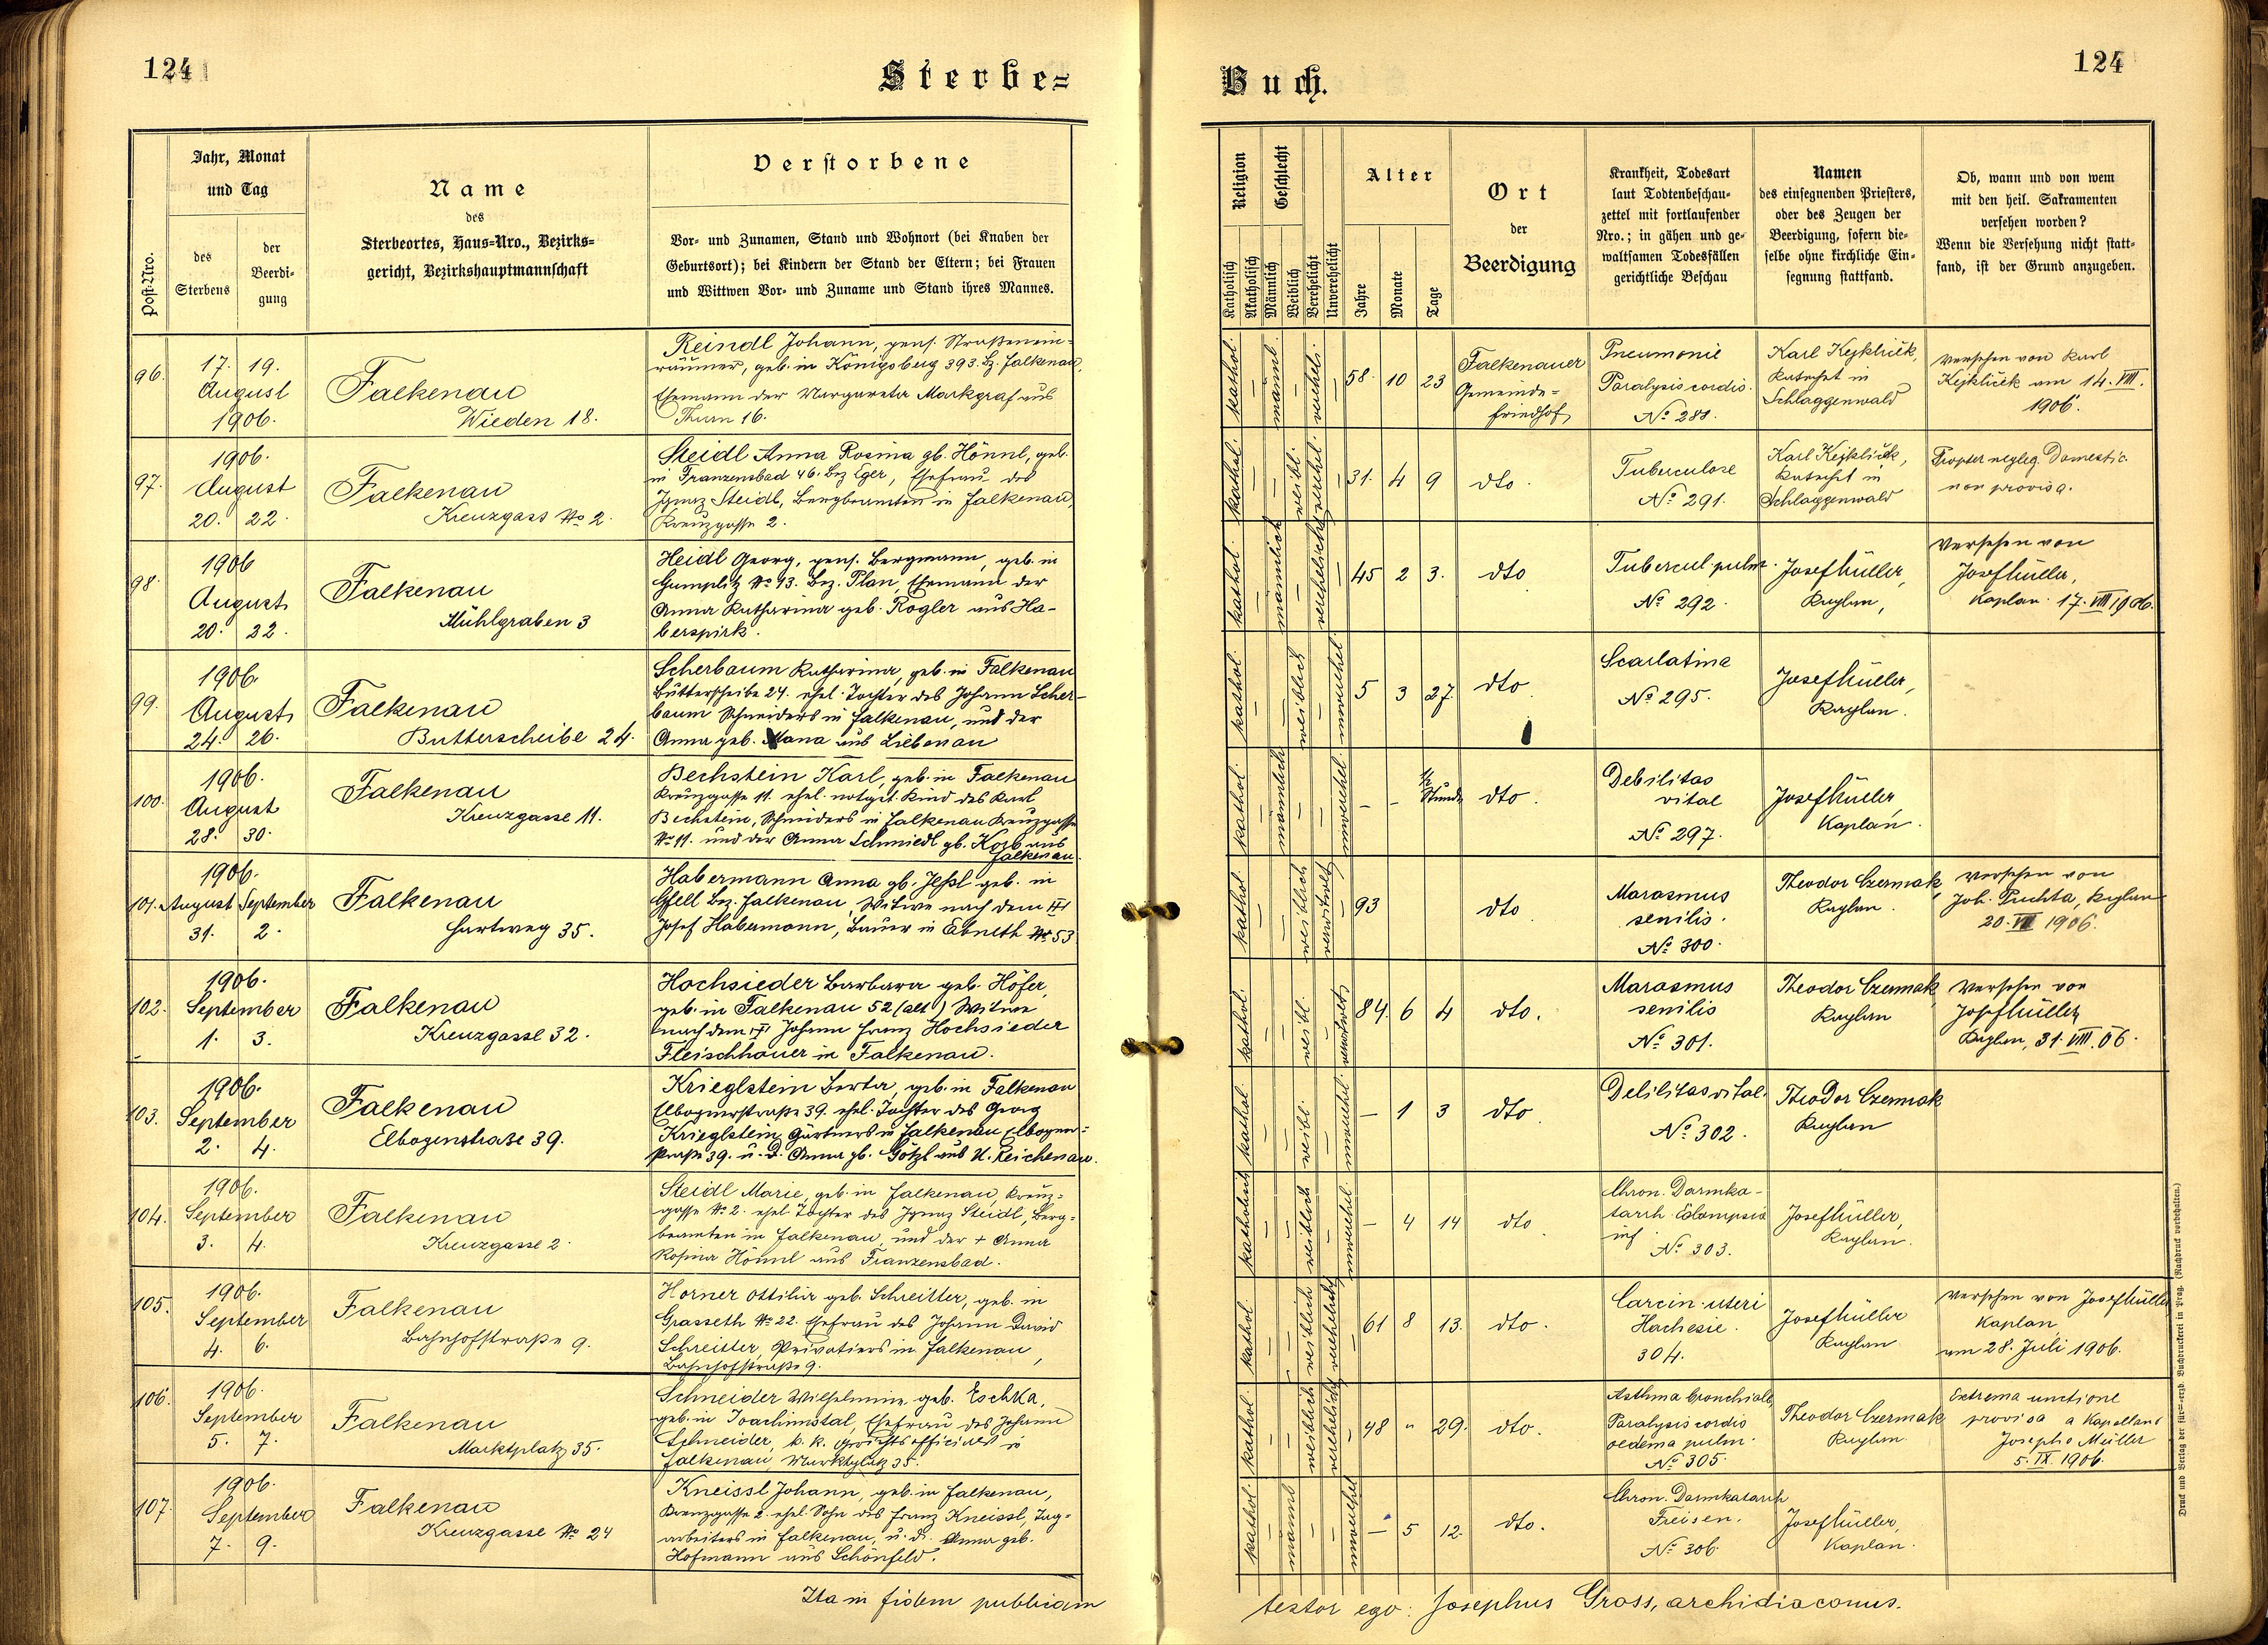 124
Sterbe=
Jahr, Monat
und Tag
Name
des
Sterbeortes, Haus=Nro., Bezirks=
gericht, Bezirkshauptmannschaft
Verstorbene
Post=Nro.
des
Sterbens
der
Beerdi=
gung
Vor= und Zunamen, Stand und Wohnort (bei Knaben der
Geburtsort); bei Kindern der Stand der Eltern; bei Frauen
und Wittwen Vor= und Zuname und Stand ihres Mannes.
96.
17. 19.
August
1906.
Falkenau
Wieden 18.
Reindl Johann, pens. Straßenein=
räumer, geb. in Königsberg 393. Bz. Falkenau,
Ehemann der Margareta Markgraf aus
Thurn 16.
97.
1906.
August
20. 22.
Falkenau
Kreuzgass No 2.
Steidl Anna Rosina gb. Hönnl, geb.
in Franzensbad 46. Bez Eger, Ehefrau des
Ignaz Steidl, Bergbeamten in Falkenau,
Kreuzgasse 2.
98.
1906
August
20. 22.
Falkenau
Mühlgraben 3
Heidl Georg, pens. Bergmann, geb. in
Gumplitz No 93. Bez. Plan, Ehemann der
Anna Katharina geb. Rogler aus Ha-
berspirk.
99.
1906.
August
24. 26.
Falkenau
Butterscheibe 24.
Scherbaum Katharina, geb. in Falkenau
Butterscheibe 24. ehel. Tochter des Johann Scher-
baum Schneiders in Falkenau, und der
Anna geb. Mana aus Liebenau
100.
1906.
August
28. 30.
Falkenau
Kreuzgasse 11.
Bechstein Karl, geb. in Falkenau
Kreuzgasse 11. ehel. notget. Kind des Karl
Bechstein, Schneiders in Falkenau Kreuzgasse
No 11. und der Anna Schmiedl gb. Korb aus
Falkenau.
101.
1906.
August September
31. 2.
Falkenau
Hartweg 35.
Habermann Anna gb. Jessl geb. in
Gfell Bez. Falkenau, Witwe nach dem
Josef Habermann, Bauer in Ebneth No 53
102.
1906.
September
1. 3.
Falkenau
Kreuzgasse 32.
Hochsieder Barbara geb. Höfer,
geb. in Falkenau 52 (alt) Witwe
nach dem Johann Franz Hochsieder
Fleischhauer in Falkenau.
103.
1906.
September
2. 4.
Falkenau
Elbogenstraße 39.
Krieglstein Berta, geb. in Falkenau
Elbognerstraße 39. ehel. Tochter des Georg
Krieglstein, Gärtners in Falkenau Elbogen=
straße 39. u. d. Anna gb. Götzl aus U. Reichenau.
104.
1906.
September
3. 4.
Falkenau
Kreuzgasse 2.
Steidl Marie, geb. in Falkenau, Kreuz=
gasse No 2. ehel. Tochter des Ignaz Steidl, Berg=
beamten in Falkenau, und der + Anna
Rosina Hönnl aus Franzensbad.
105.
1906.
September
4. 6.
Falkenau
Bahnhofstraße 9.
Horner Ottilia geb. Schreitter, geb. in
Grasseth No 22. Ehefrau des Johann David
Schreitter, Privatiers in Falkenau,
Bahnhofstraße 9.
106.
1906.
September
5. 7.
Falkenau
Marktplatz 35.
Schneider Wilhelmine geb. Eschka,
geb. in Joachimstal, Ehefrau des Johann
Schneider, k. k. in
Falkenau, Marktplatz 35.
107.
1906.
September
7. 9.
Falkenau
Kreuzgasse No 24
Kneissl Johann, geb. in Falkenau,
Kreuzgasse 2. ehel. Sohn des Franz Kneissl, Tag=
arbeiters in Falkenau, u. d. Anna geb.
Hofmann aus Schönfeld.
Ita in fidem publicam
Buch.
124
Religion
Geschlecht
Alter
Ort
der
Beerdigung
Krankheit, Todesart
laut Todtenbeschau=
zettel mit fortlaufender
Nro.; in gähen und ge=
waltsamen Todesfällen
gerichtliche Beschau
Namen
des einsegnenden Priesters,
oder des Zeugen der
Beerdigung, sofern die=
selbe ohne kirchliche Ein=
segnung stattfand.
Ob, wann und von wem
mit den heil. Sakramenten
versehen worden?
Wenn die Versehung nicht statt=
fand, ist der Grund anzugeben.
Katholisch
Akatholisch
Männlich
Weiblich
Verehelicht
Unverehelicht
Jahre
Monate
Tage
kathol.
männl.
verehel.
58. 10 23
Falkenauer
Gemeinde=
friedhof
Pneumonie
Paralysis cordis.
No 288.
Karl Kejklíček,
Katechet in
Schlaggenwald
Versehen von Karl
Kejklíček am 14. VIII.
1906.
kathol.
weibl.
verehel.
31. 4 9
dto.
Tuberculose
No 291.
Karl Kejklíček,
Katechet in
Schlaggenwald
Propter negleg. Domestic.
non provisa.
kathol.
männlich
verehelicht
45 2 3.
dto
Tubercul. pulm.
No 292.
Josef Müller,
Kaplan,
Versehen von
Josef Müller,
Kaplan. 17. VIII 1906.
kathol.
weiblich
unverehel.
5 3 27.
dto.
Scarlatina
No 295.
Josef Müller,
Kaplan.
kathol.
männlich
unverehel.
– – 1/2 Stunde
dto.
Debilitas
vital
No 297.
Josef Müller
Kaplan.
kathol.
weiblich
verwitwet
93
dto
Marasmus
senilis.
No 300.
Theodor Czermak
Kaplan.
Versehen von
Joh. Puchta, Kaplan
20. VIII 1906.
kathol.
weibl.
verwitwet
84. 6 4
dto.
Marasmus
senilis
No 301.
Theodor Czermak
Kaplan
Versehen von
Josef Müller
Kaplan, 31. VIII. 06.
kathol.
weibl.
unverehel.
– 1 3
dto
Debilitas vital.
No 302.
Theodor Czermak
Kaplan
katholisch
weiblich
unverehel.
– 4 14
dto
Chron. Darmka-
tarrh. Eclampsia
inf.
No 303.
Josef Müller,
Kaplan.
kathol.
weiblich
verehelicht
61 8 13.
dto.
Carcin. uteri
Kachexie.
304.
Josef Müller
Kaplan
Versehen von Josef Müller
Kaplan
am 28. Juli 1906.
kathol.
weiblich
verehelicht
48 " 29.
dto.
Asthma bronchiale
Paralysis cordis
oedema pulm.
No 305.
Theodor Czermak
Kaplan.
Extrema unctione
provisa a Kapellano
Josepho Müller
5. IX. 1906.
kathol.
männl.
unverehel.
– 5 12.
dto.
Chron. Darmkatarrh
Freisen.
No 306
Josef Müller,
Kaplan.
testor ego: Josephus Gross, archidiaconus.
Druck und Verlag der für=erzb. Buchdruckerei in Prag. (Nachdruck vorbehalten.)